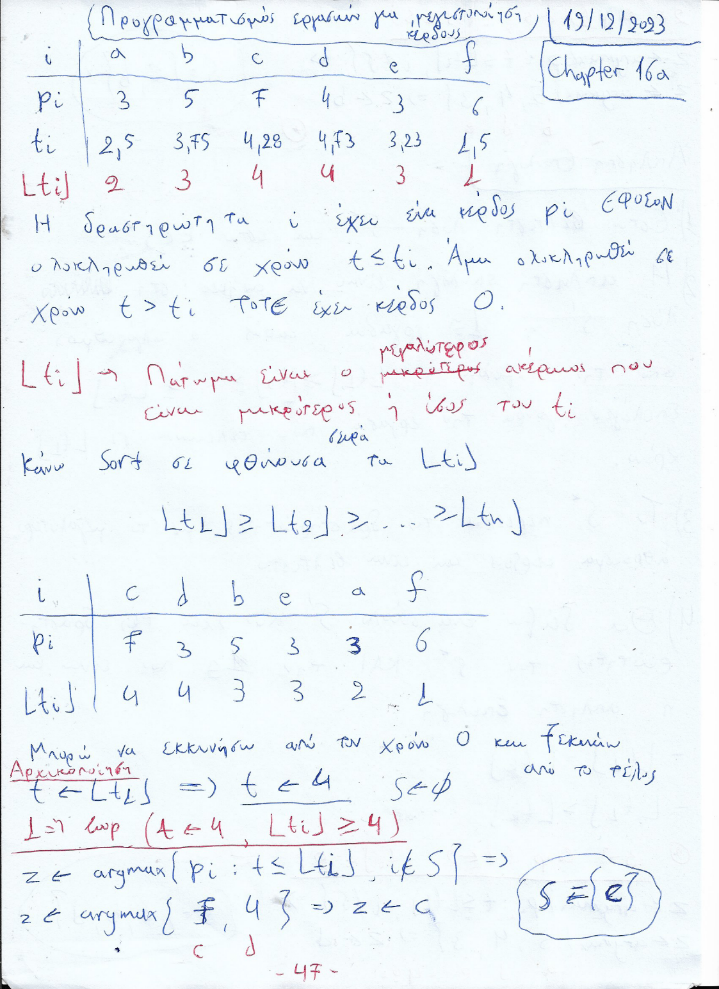 Προγραμματισμός εργασιών για μεγιστοποίηση κέρδους
19/12/2023
Chapter 16a
i a b c d e f
pi 3 5 7 4 3 6
ti 2,5 3,75 4,28 4,73 3,23 1,5
⌊ti⌋ 2 3 4 4 3 1
Η δραστηριότητα i έχει ένα κέρδος pi ΕΦΟΣΟΝ
ολοκληρωθεί σε χρόνο t ≤ ti. Άμα ολοκληρωθεί σε
χρόνο t > ti ΤΟΤΕ έχει κέρδος 0.
⌊ti⌋ → Πάτωμα είναι ο μεγαλύτερος μικρότερος ακέραιος που
είναι μικρότερος ή ίσος του ti
Κάνω Sort σε φθίνουσα σειρά τα ⌊ti⌋
⌊t1⌋ ≥ ⌊t2⌋ ≥ .... ≥ ⌊tn⌋
i c d b e a f
pi 7 3 5 3 3 6
⌊ti⌋ 4 4 3 3 2 1
Μπορώ να εκκινήσω από τον χρόνο 0 και ξεκινάω
από το τέλος
Αρχικοποίηση
t ← ⌊t1⌋ => t ← 4 S ← ∅
1=η loop (t ← 4, ⌊ti⌋ ≥ 4)
z ← argmax{pi : t ≤ ⌊ti⌋, i∉S} =>
z ← argmax{7, 4} => z ← c
c d
S = {c}
- 47 -